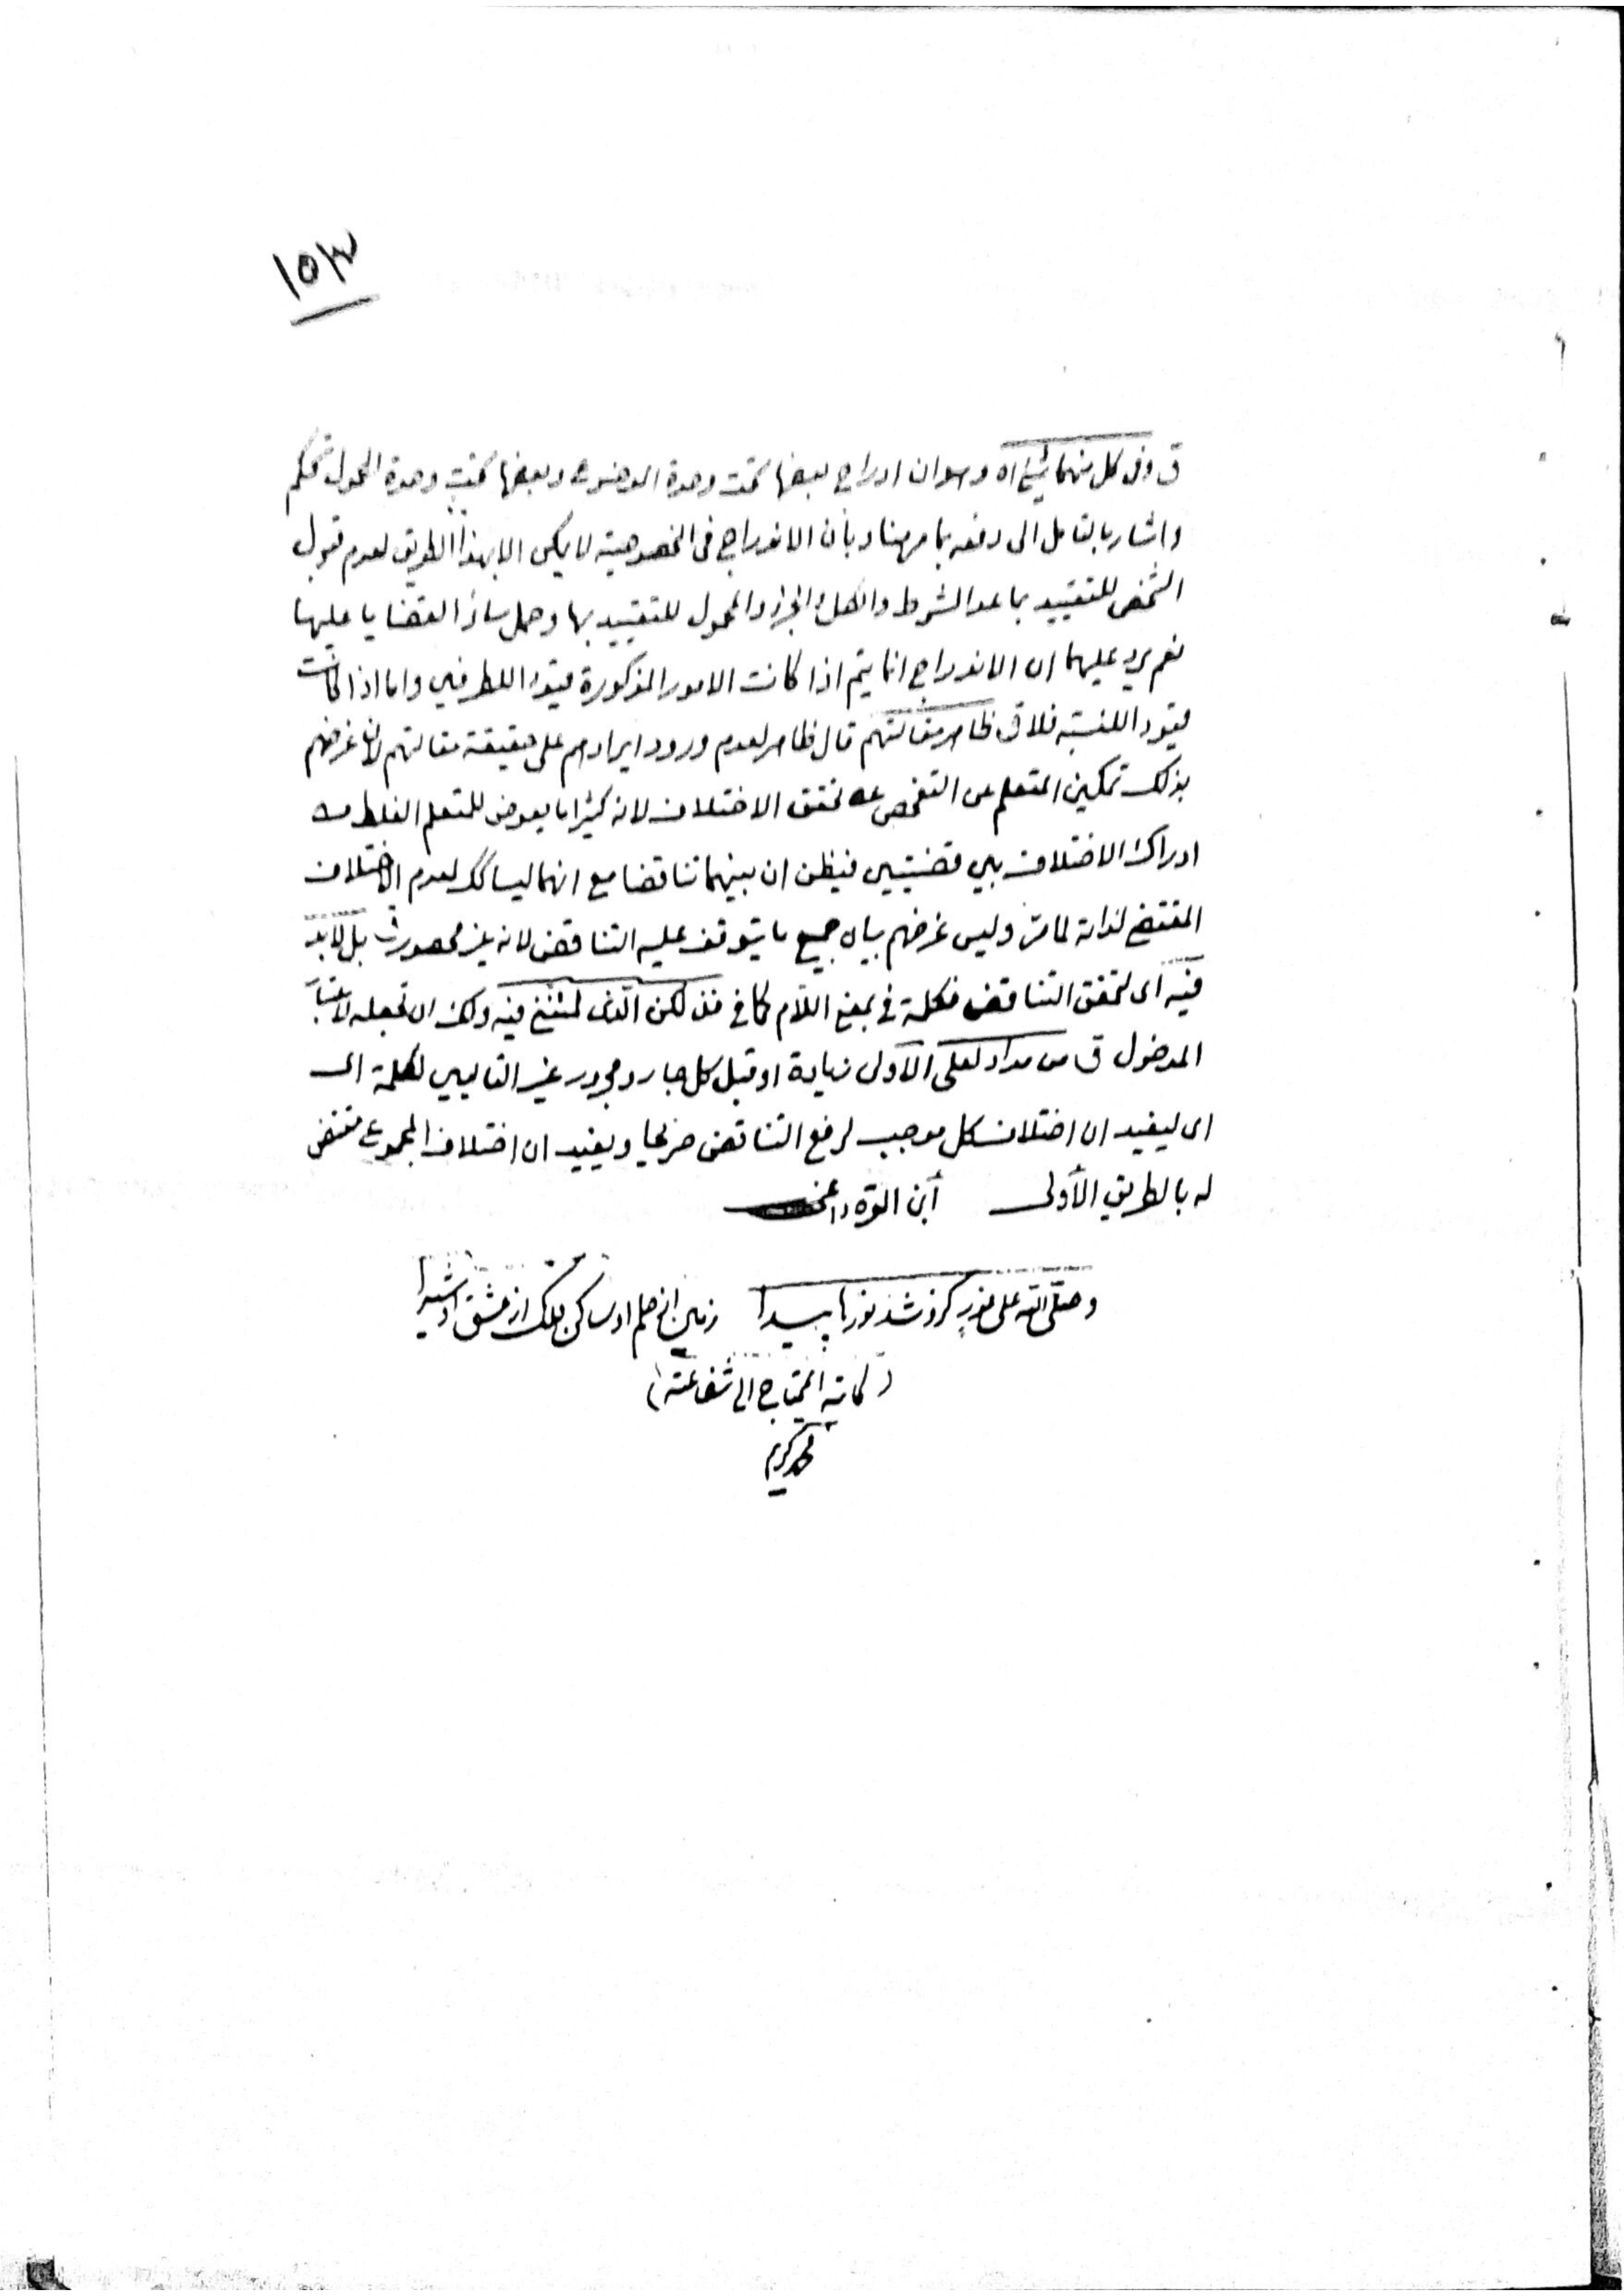 ١٥٣
ق وفي كل منهما شيء اه وهو ان ادراج بعضها تحت وحدة الموضوع وبعضها تحت وحدة المحمول تحكم
واشار بالتأمل الى دفعه بما مر هنا وبأن الاندراج في الخصوصية لا يكن الا بهذا الطريق لعدم قبول
الشخص للتقييد بما عدا الشرط والكل والجزء والمحمول للتقييد بها وحمل سائر القضايا عليها
نعم يرد عليهما ان الاندراج انما يتم اذا كانت الامور المذكورة قيود الطرفين واما اذا كانت
قيود اللنسبة فلا ق ظاهر مقالتهم قال ظاهر لعدم ورود ايرادهم على حقيقة مقالتهم لان غرضهم
بذلك تمكين المتعلم من التفحص عن تحقق الاختلاف لانه كثيرا ما يعرض للمتعلم الغلط من
ادراك الاختلاف بين قضيتين فيظن ان بينهما تناقضا مع انهما ليسا كك لعدم الاختلاف
المقتضي لذاته لما مر وليس غرضهم بيان جميع ما يتوقف عليه التناقض لانه غير محصور ق بل لا بد
فيه اى لتحقق التناقض فكلمة في بمعنى اللام كما في فذلكن الذى لمتنني فيه ولك ان تجعله لاعتبار
المدخول ق من مداد لعلى الأولى زيادة او قبل كل جار ومجرور غير التاليين لكلمة الى
اى ليفيد ان اختلاف كل موجب لرفع التناقض صريحا ويفيد ان اختلاف المجموع مقتض
له بالطريق الأولى ابن القره داغى
وصلى الله على نور كزو شد نورها پيدا زمين از حلم او ساكن فلك از عشق او شيدا
(كاتبه المحتاج الى شفاعته)
محمد كريم